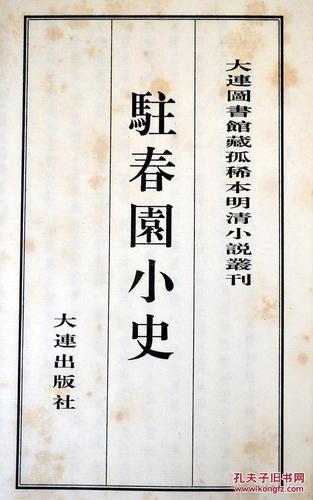 大連圖書館藏孤稀本明清小説叢刊
駐春園小史
大連出版社
孔夫子旧书网
www.kongfz.com